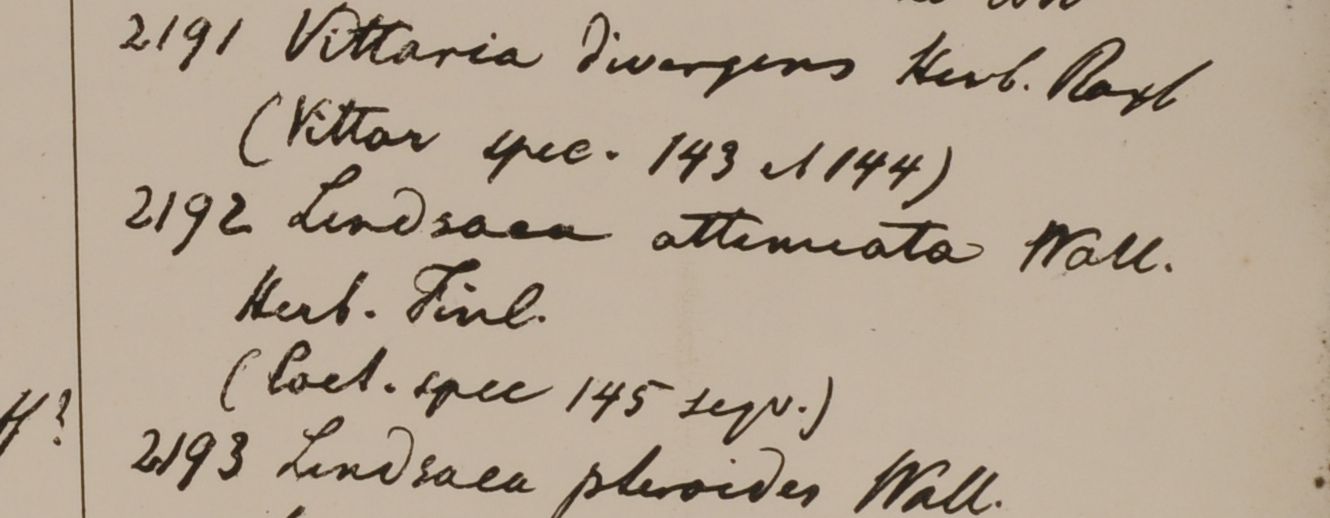 2191 Vittaria divergens Herb. Roxb
(Vittar spec. 143 et 144)
2192 Lindsaea attenuata Wall.
Herb. Finl.
(Coet. spec 145 seqv.)
H?
2193 Lindsaea pteroides Wall.